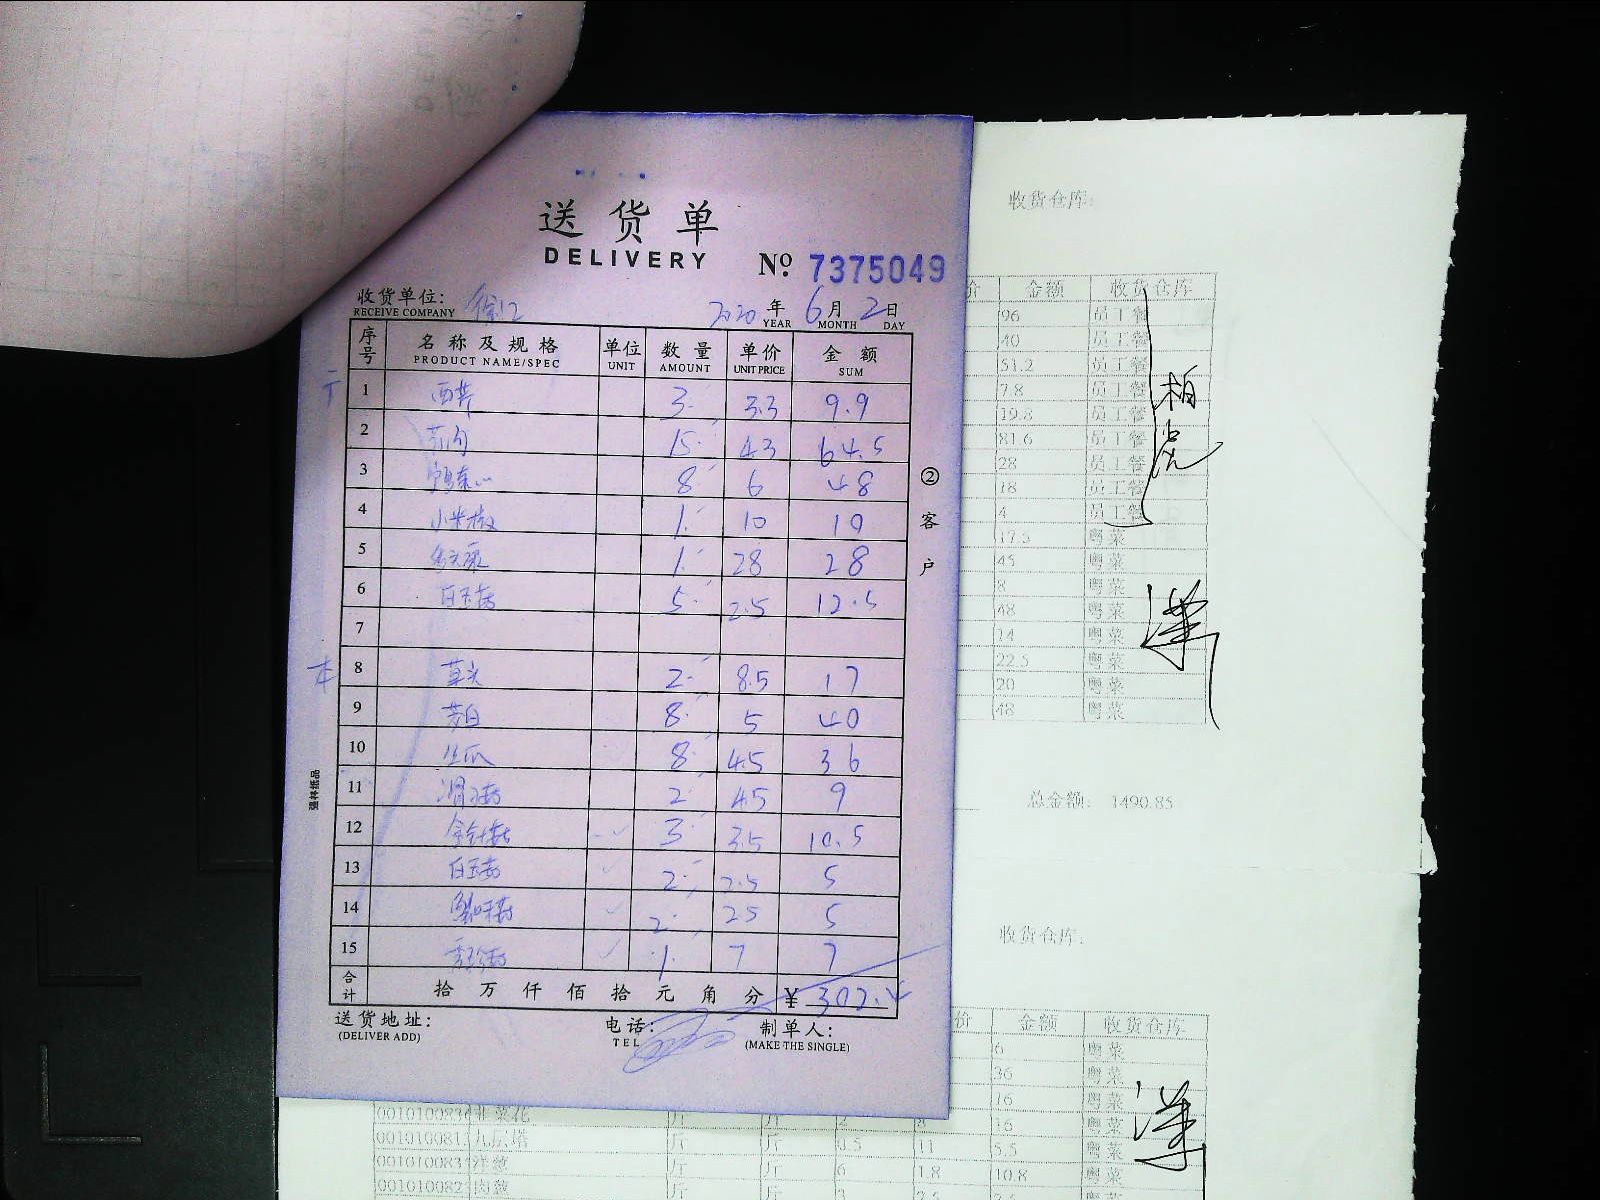 送货单
DELIVERY
№ 7375049
收货单位: 徐汇 2020年 6月 2日
RECEIVE COMPANY YEAR MONTH DAY
序号 名称及规格 单位 数量 单价 金额
PRODUCT NAME/SPEC UNIT AMOUNT UNIT PRICE SUM
1 西芹 3 3.3 9.9
2 15 4.3 64.5
3 8 6 48
4 小米椒 1 10 10
5 1 28 28
6 白玉菇 5 2.5 12.5
7
8 草头 2 8.5 17
9 茭白 8 5 40
10 丝瓜 8 4.5 36
11 滑子菇 2 4.5 9
12 金针菇 3 3.5 10.5
13 白玉菇 2 2.5 5
14 蟹味菇 2 2.5 5
15 秀珍菇 1 7 7
合计 拾万仟佰拾元角分 ¥ 302.4
送货地址: 电话: 制单人:
(DELIVER ADD) TEL (MAKE THE SINGLE)
②客户
强林纸品
收货仓库:
价 金额 收货仓库
96 员工餐
40 员工餐
51.2 员工餐
7.8 员工餐
19.8 员工餐
81.6 员工餐
28 员工餐
18 员工餐
4 员工餐
17.5 粤菜
45 粤菜
8 粤菜
48 粤菜
14 粤菜
22.5 粤菜
20 粤菜
48 粤菜
总金额: 1490.85
收货仓库:
价 金额 收货仓库
6 粤菜
36 粤菜
16 粤菜
韭菜花 斤 斤 2 16 粤菜
九层塔 斤 斤 0.5 11 5.5 粤菜
洋葱 斤 斤 6 1.8 10.8 粤菜
肉葱 斤 斤 3 粤菜